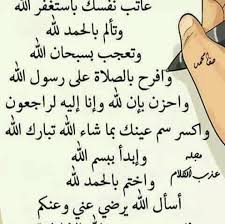 عاتب نفسك باستغفر الله
وتألم بالحمد لله
وتعجب بسبحان الله
وافرح بالصلاة على رسول الله
واحزن بإن لله وإنا إليه لراجعون
واكسر سم عينك بما شاء الله تبارك الله
وإبدأ ببسم الله
واختم بالحمد لله
أسأل الله يرضي عني وعنكم
مجلة
عذب الكلام